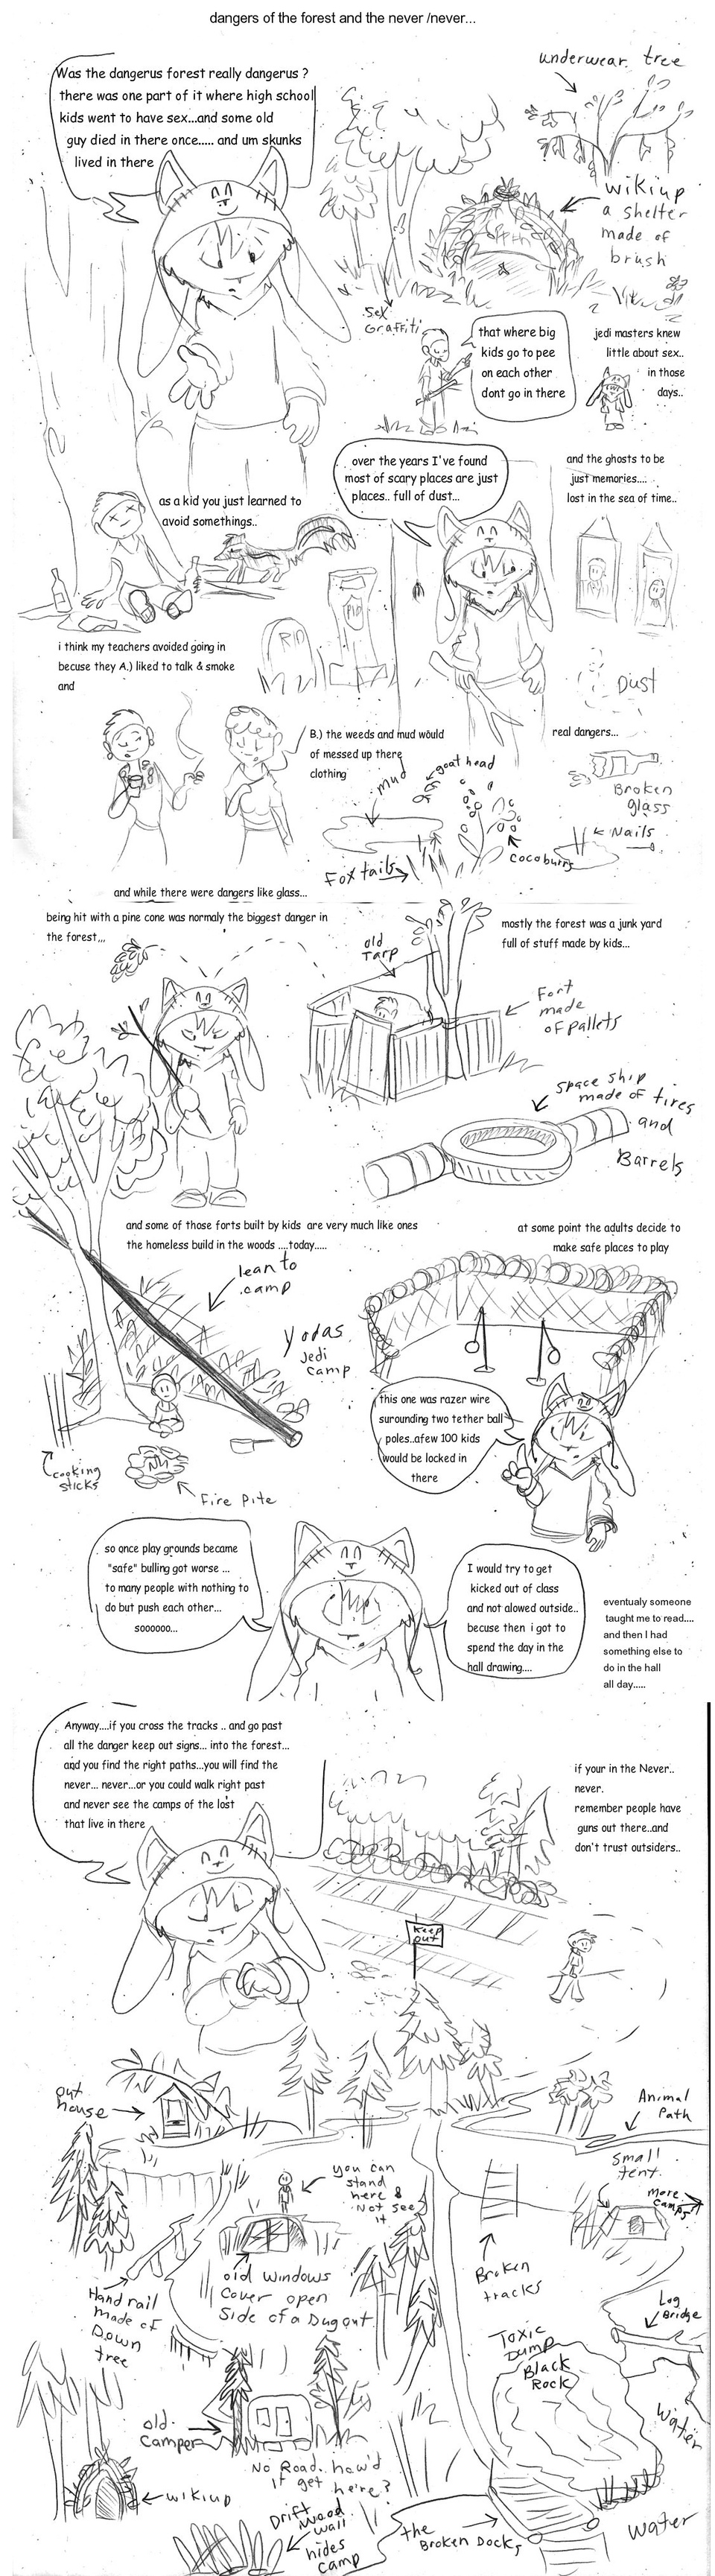 dangers of the forest and the never /never...
Was the dangerus forest really dangerus ?
there was one part of it where high school
kids went to have sex...and some old
guy died in there once..... and um skunks
lived in there
underwear tree
wikiup
a shelter
made of
brush
sex
Graffiti
that where big
kids go to pee
on each other
dont go in there
jedi masters knew
little about sex..
in those
days..
as a kid you just learned to
avoid somethings..
over the years I've found
most of scary places are just
places.. full of dust...
and the ghosts to be
just memories....
lost in the sea of time..
RIP
RIP
Dust
i think my teachers avoided going in
becuse they A.) liked to talk & smoke
and
B.) the weeds and mud would
of messed up there
clothing
real dangers...
mud
goat head
Foxtails
cocoburrs
Broken
glass
Nails
and while there were dangers like glass...
being hit with a pine cone was normaly the biggest danger in
the forest,,,
old
Tarp
mostly the forest was a junk yard
full of stuff made by kids...
Fort
made
of pallets
space ship
made of tires
and
Barrels
and some of those forts built by kids are very much like ones
the homeless build in the woods ....today.....
lean to
camp
Yodas
Jedi
camp
cooking
sticks
Fire Pite
at some point the adults decide to
make safe places to play
this one was razer wire
surounding two tether ball
poles..afew 100 kids
would be locked in
there
so once play grounds became
"safe" bulling got worse ...
to many people with nothing to
do but push each other...
soooooo...
I would try to get
kicked out of class
and not alowed outside..
becuse then i got to
spend the day in the
hall drawing....
eventualy someone
taught me to read....
and then I had
something else to
do in the hall
all day.....
Anyway....if you cross the tracks .. and go past
all the danger keep out signs... into the forest...
and you find the right paths...you will find the
never... never...or you could walk right past
and never see the camps of the lost
that live in there
if your in the Never..
never.
remember people have
guns out there..and
don't trust outsiders..
Keep
out
out
house
Animal
Path
you can
stand
here &
Not see
it
small
tent
more
camps
Hand rail
made of
Down
tree
old windows
cover open
side of a Dugout
Broken
tracks
Log
Bridge
Toxic
Dump
Black
Rock
Water
old
camper
No Road.. how'd
it get here?
wikiup
Drift
wood
wall
hides
camp
the
Broken Docks
Water